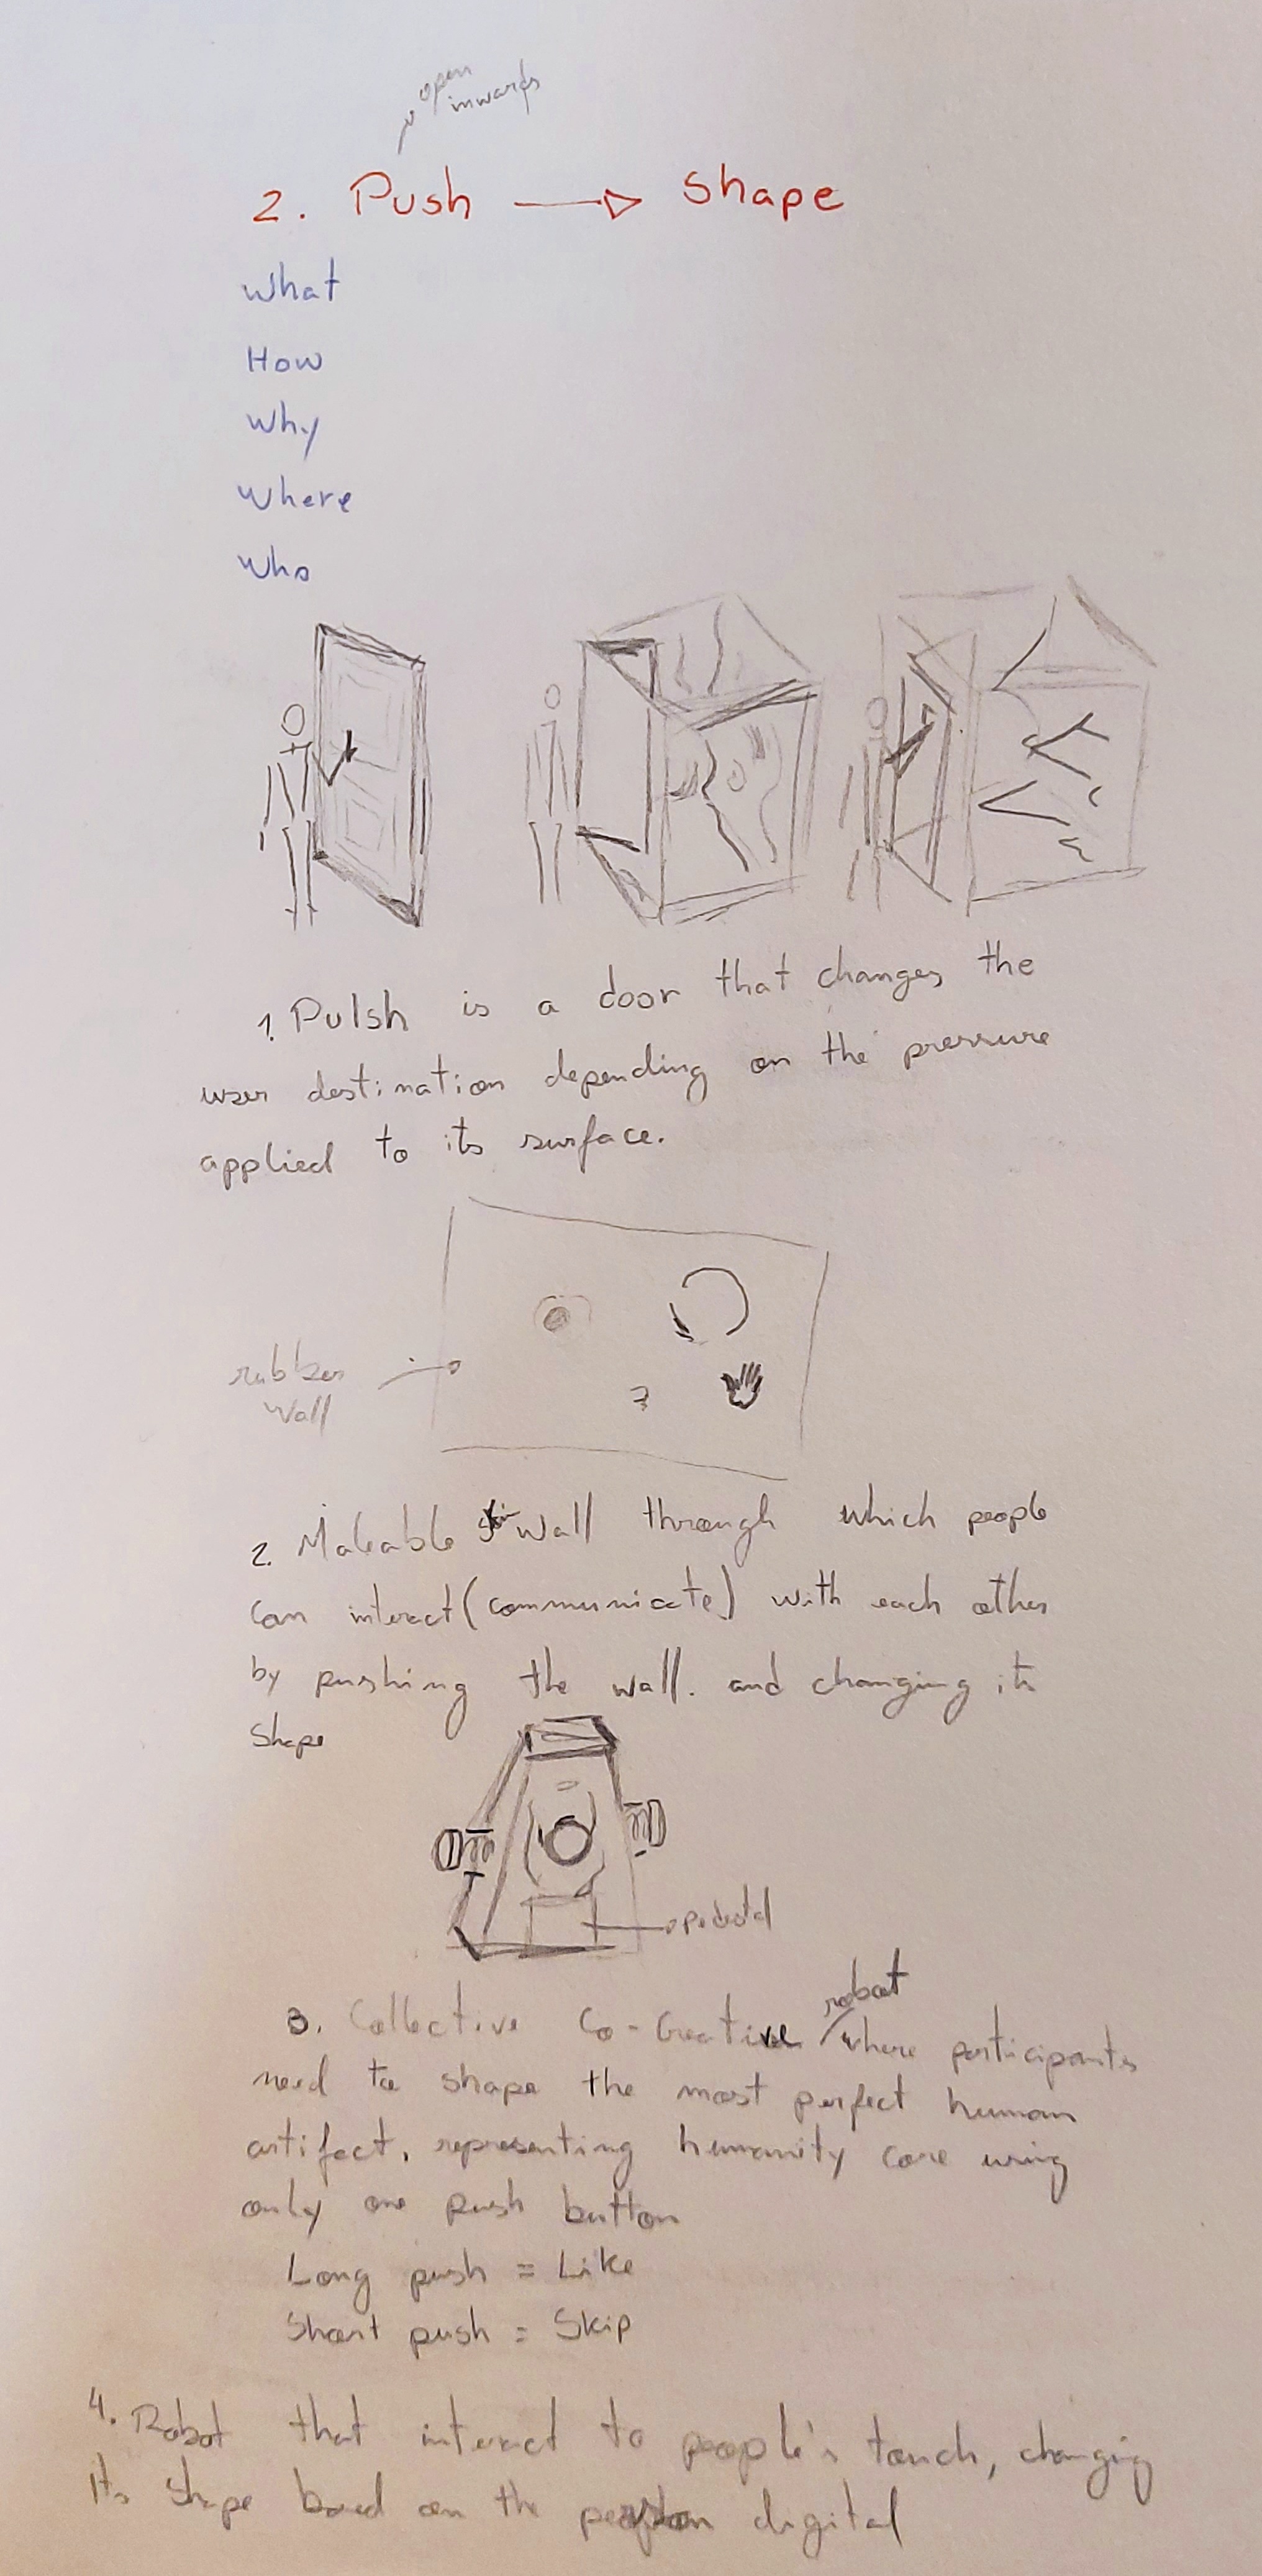 open
inwards
2. Push → Shape
What
How
Why
Where
Who
1. Pulsh is a door that changes the
user destination depending on the pressure
applied to its surface.
rubber
wall
2. Maleable wall through which people
can interact (communicate) with each other
by pushing the wall. and changing its
shape
pedestal
robot
3. Collective Co-Creative where participants
need to shape the most perfect human
artifact, representing humanity core using
only one push button
Long push = Like
Short push = Skip
4. Robot that interact to people's touch, changing
its shape based on the person digital